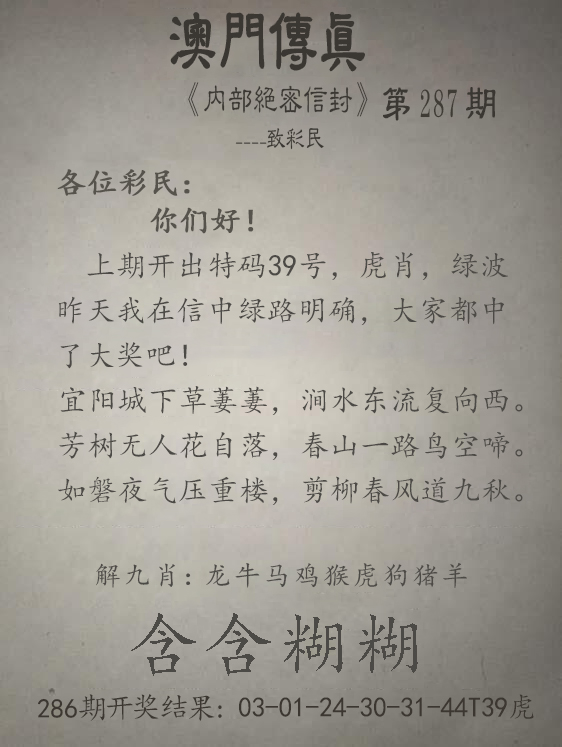 澳門傳真
《内部絕密信封》第287期
----致彩民
各位彩民：
你们好！
上期开出特码39号，虎肖，绿波
昨天我在信中绿路明确，大家都中
了大奖吧！
宜阳城下草萋萋，涧水东流复向西。
芳树无人花自落，春山一路鸟空啼。
如磐夜气压重楼，剪柳春风道九秋。
解九肖：龙牛马鸡猴虎狗猪羊
含含糊糊
286期开奖结果：03-01-24-30-31-44T39虎